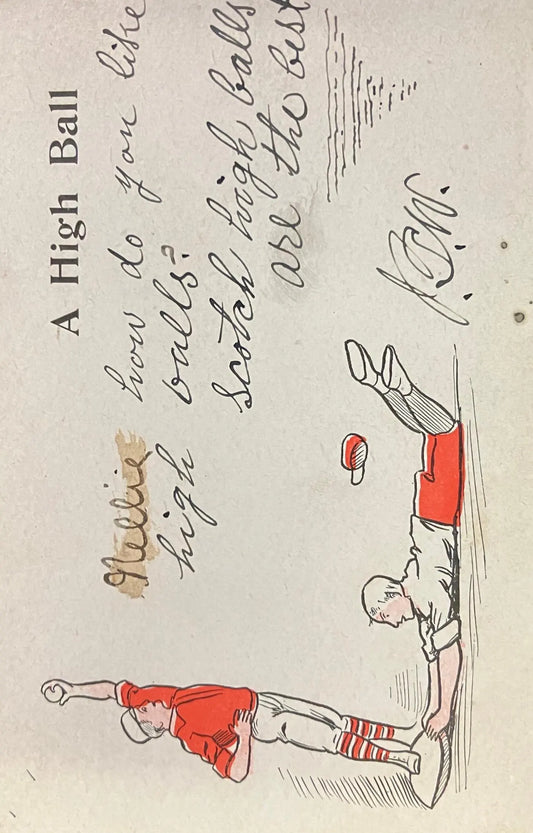 A High Ball
Nellie how do you like
high balls?
scotch high balls
are the best
J.B.W.